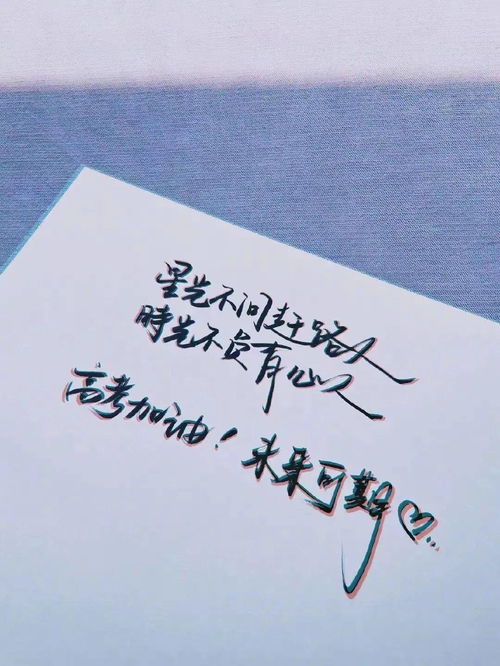 星光不问赶路人
時光不负有心人
高考加油！未来可期♡...